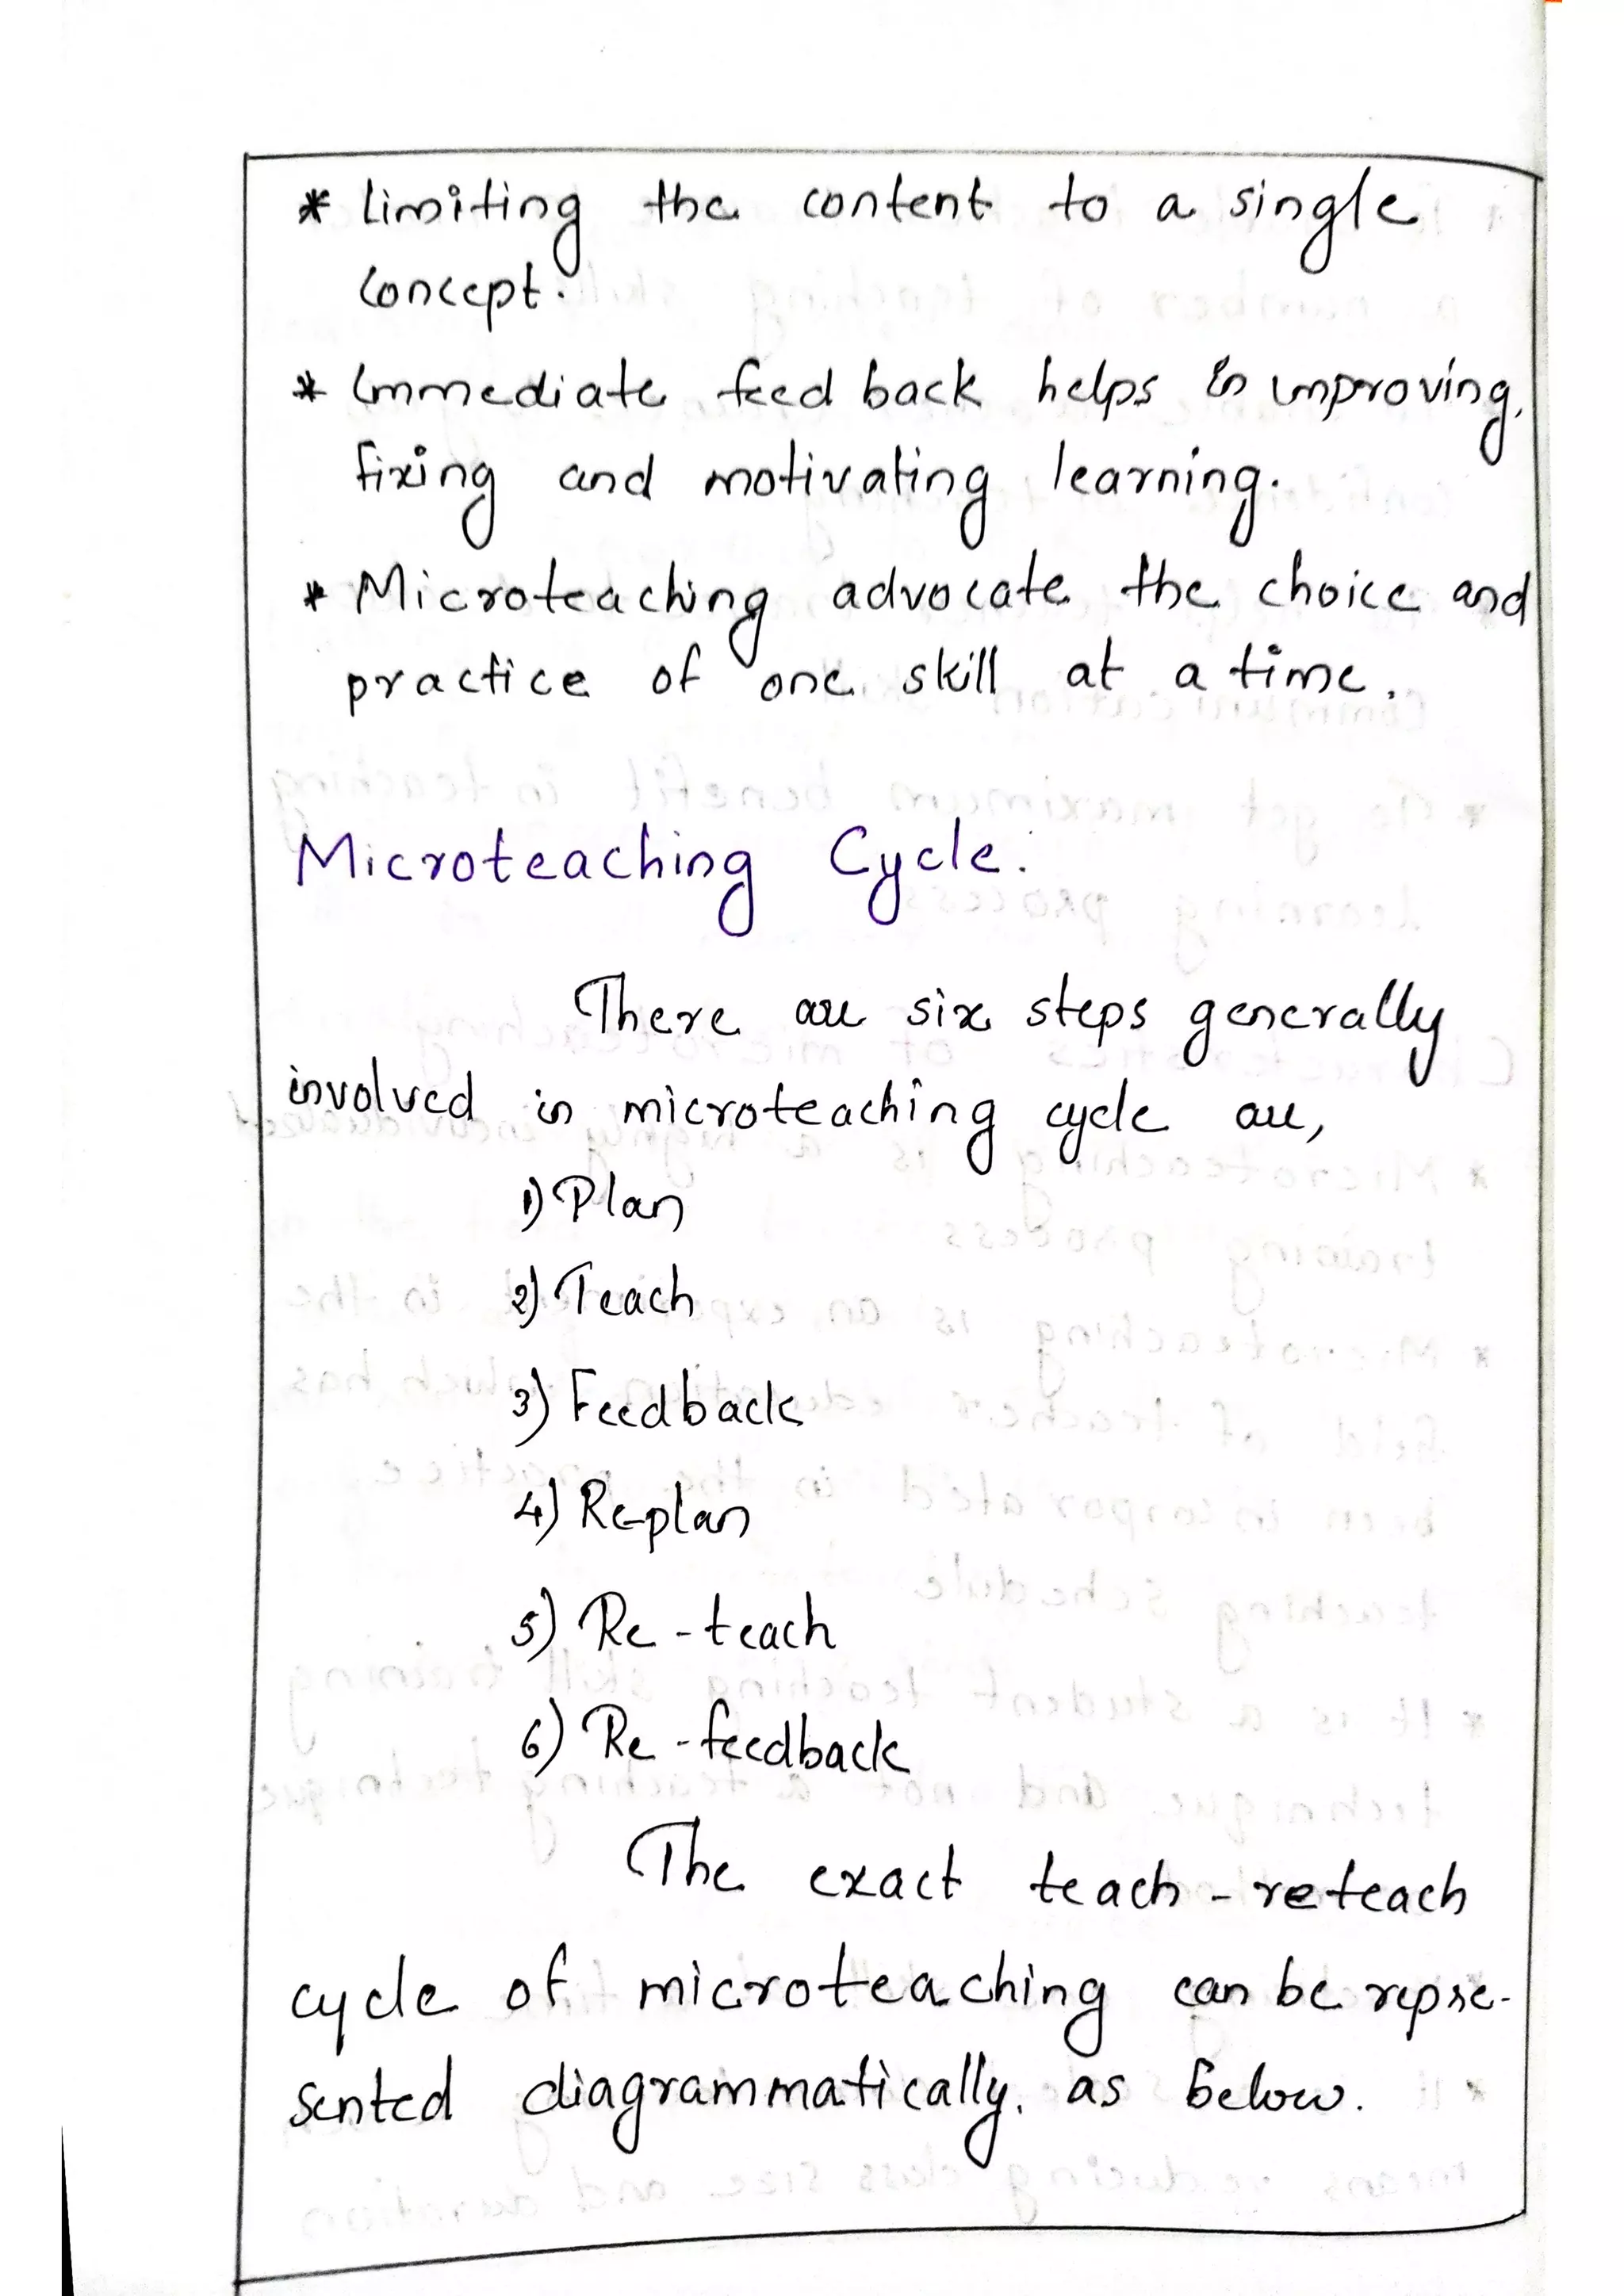 * Limiting the content to a single
concept.
* Immediate feed back helps in improving,
fixing and motivating learning.
* Microteaching advocate the choice and
practice of one skill at a time.
Microteaching Cycle:
There are six steps generally
involved in microteaching cycle are,
1) Plan
2) Teach
3) Feedback
4) Re-plan
5) Re-teach
6) Re-feedback
The exact teach-reteach
cycle of microteaching can be repre-
sented diagrammatically, as below.